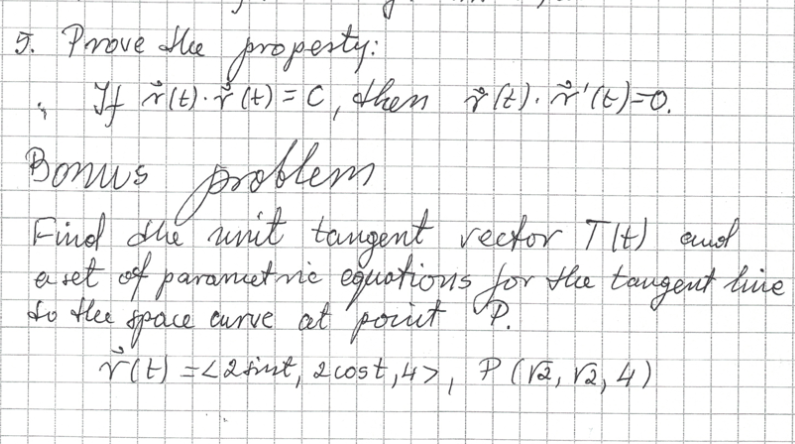 5. Prove the property:
If r⃗(t)·r⃗(t) = C, then r⃗(t)·r⃗'(t)=0.
Bonus problem
Find the unit tangent vector T(t) and
a set of parametric equations for the tangent line
to the space curve at point P.
r⃗(t) = <2sint, 2cost, 4>, P(√2, √2, 4)